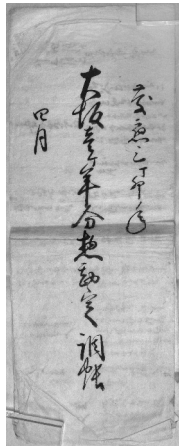 慶應三丁卯年
大坂壹ヶ年分惣勘定調帳
四月